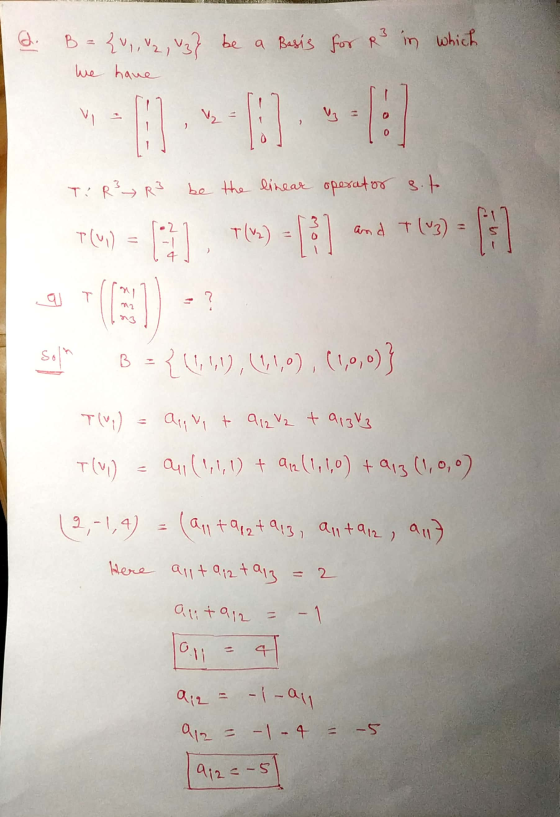 Q. B = {v₁, v₂, v₃} be a Basis for R³ in which
we have
v₁ = [1 1 1], v₂ = [1 1 0], v₃ = [1 0 0]
T: R³ → R³ be the linear operator s.t
T(v₁) = [2 -1 4], T(v₂) = [3 0 1] and T(v₃) = [-1 5 1]
a) T([x₁ x₂ x₃]) = ?
Solⁿ B = {(1,1,1), (1,1,0), (1,0,0)}
T(v₁) = a₁₁v₁ + a₁₂v₂ + a₁₃v₃
T(v₁) = a₁₁(1,1,1) + a₁₂(1,1,0) + a₁₃(1,0,0)
(2,-1,4) = (a₁₁+a₁₂+a₁₃, a₁₁+a₁₂, a₁₁)
Here a₁₁+a₁₂+a₁₃ = 2
a₁₁+a₁₂ = -1
a₁₁ = 4
a₁₂ = -1-a₁₁
a₁₂ = -1-4 = -5
a₁₂ = -5